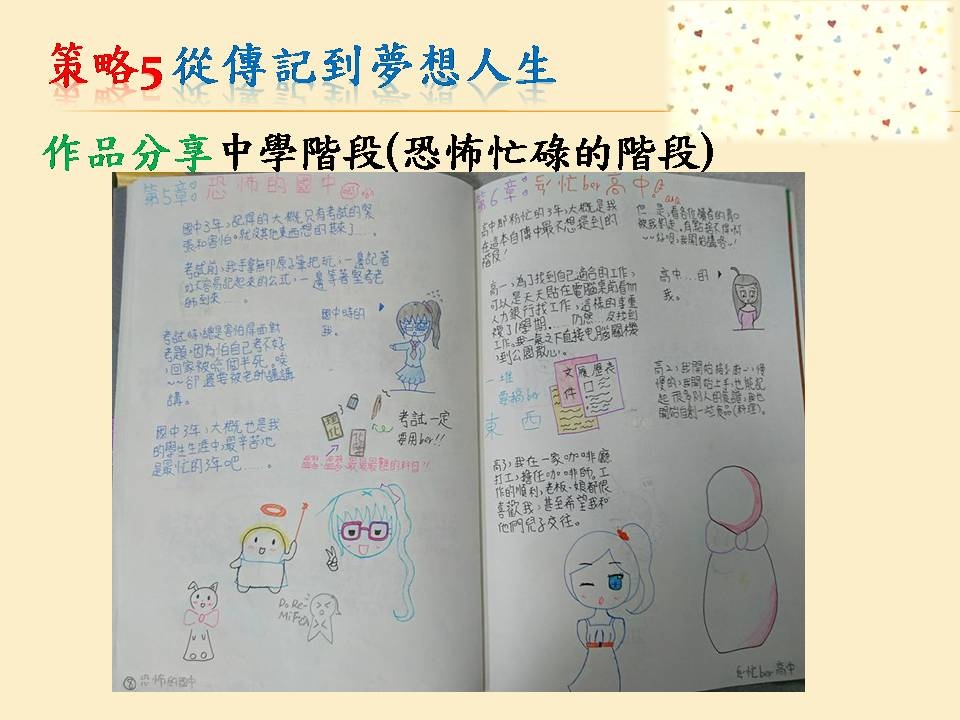 策略5 從傳記到夢想人生
作品分享中學階段(恐怖忙碌的階段)
第5章:恐怖的國中
國中3年,記得的大概只有考試的緊
張和害怕,就沒其他東西想的起來了……。
考試前,我手拿無印原子筆把玩,一邊記著
好不容易記起來的公式,一邊等著監考老
師到來……。
國中時的
我。
考試時,總是害怕屏面對
考題,因為怕自己考不好
,回家被唸個半死。唉
~~卻還要被老師講講
講。
考試一定
要用ber!!
理化
最最最難的科目!!
國中3年,大概也是我
的學生生涯中,最辛苦也
是最忙的3年吧……。
Do Re-
Mi Fa
⑧恐怖的國中
第6章:忙ber高中
高中即粉忙的3年,大概是我
在這本自傳中最不想提到的
階段!
但是,看各位讀者的胃口
~~好吧,我開始講咯~!
高中…的
我。
高一,為了找到自己適合的工作,
可以是天天貼在電腦桌前看咖
人力銀行找工作,這樣的事重
複了1學期.……仍然沒找到
工作。我一氣之下直接電腦關機
,到公園散心。
一堆
要搞ber
東西
文件
履歷表
高2,我開始接了廚一,慢
慢的,我開始上手,也能記
起很多別人的食譜,我也
開始自創一些食品(料理)。
高3,我在一家咖啡廳
打工,擔任咖啡師。工
作的順利,老板、娘都很
喜歡我,甚至希望我和
他們兒子交往。
忙ber高中